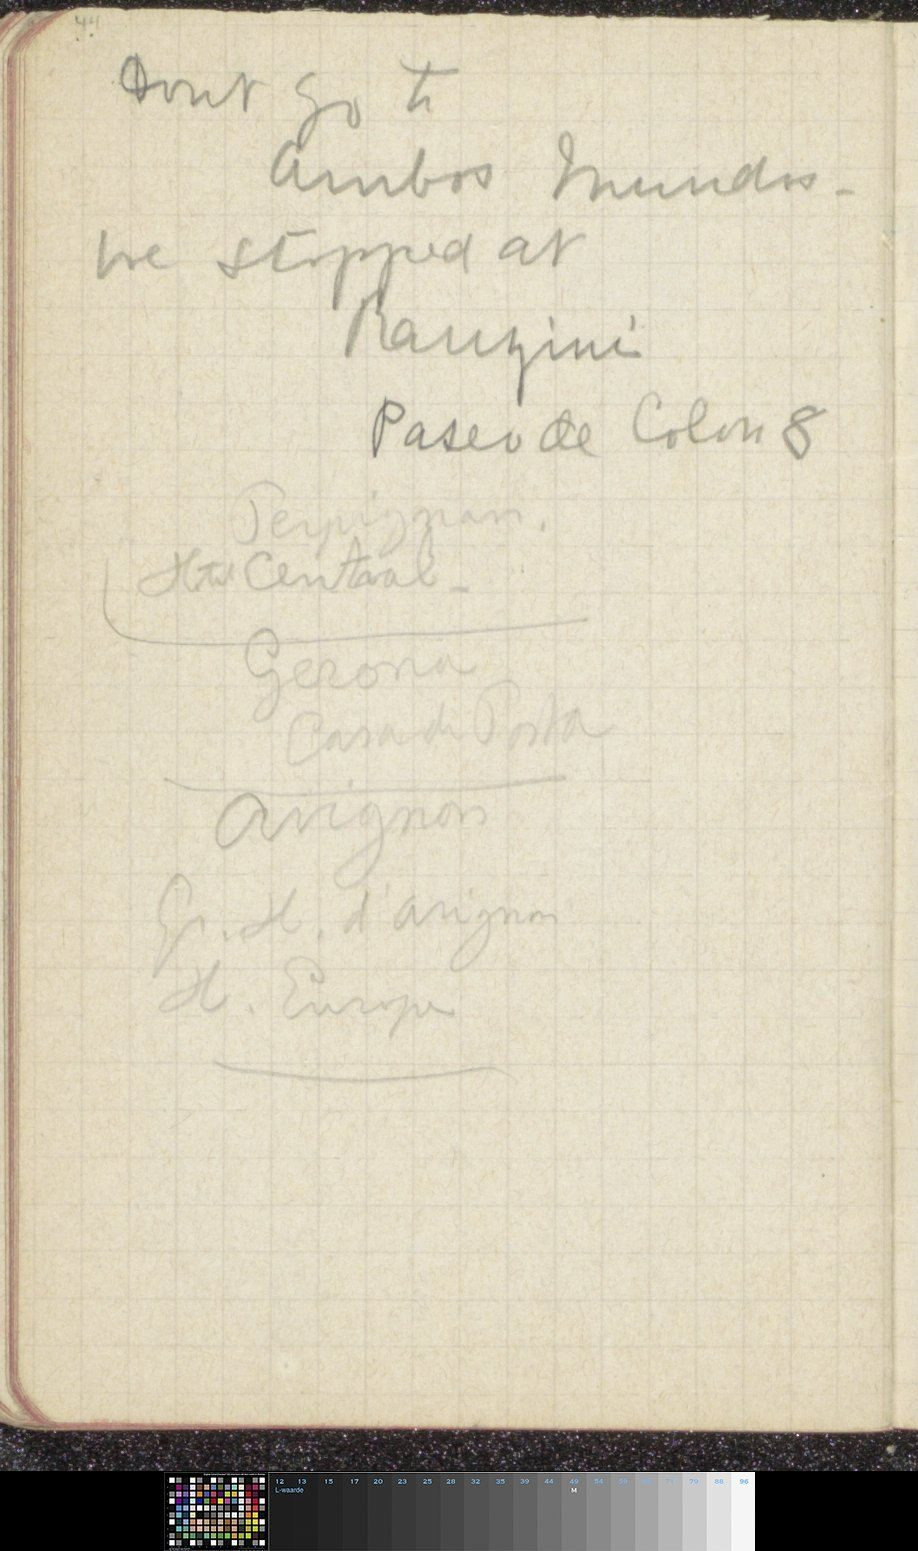 44
Dont go to
Ambos Mundos -
we stopped at
Ranzini
Paseo de Colon 8
Perpignan.
Htel Centraal -
Gerona
Casa de Posta
Avignon
Gr. H. d'Avignon
H. Europe
12 13 15 17 20 23 25 28 32 35 39 44 49 54 59 71 79 88 96
L-waarde M